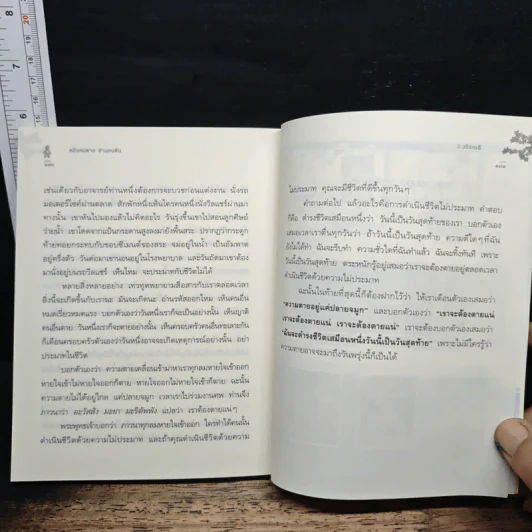 เช่นเดียวกับอาจารย์ท่านหนึ่งต้องการจะบวชก่อนแต่งงาน นั่งรถ
มอเตอร์ไซค์ผ่านตลาด สักพักหนึ่งเห็นใครคนหนึ่งนั่งวีลแชร์ผ่านมา
ทางนั้น เขาหันไปมองแล้วไม่คิดอะไร วันรุ่งขึ้นเขาไปสอนลูกศิษย์
ว่ายน้ำ เขาโดดจากแป้นกระดานสูงลงมายังพื้นสระ ปรากฏว่ากระดูก
ท้ายทอยกระทบกับขอบซีเมนต์ของสระ จมอยู่ในน้ำ เป็นอัมพาต
อยู่ครึ่งตัว วันต่อมาเขานอนอยู่ในโรงพยาบาล และวันถัดมาเขาต้อง
มานั่งอยู่บนรถวีลแชร์ เห็นไหม จะประมาทกับชีวิตไม่ได้
หลายสิ่งหลายอย่าง เทวทูตพยายามสื่อสารกับเราตลอดเวลา
สิ่งนี้จะเกิดขึ้นกับเรานะ มันจะเกิดนะ อ่านรหัสออกไหม เห็นคนอื่น
หมดเรี่ยวหมดแรง บอกตัวเองว่าวันหนึ่งเราก็จะเป็นอย่างนั้น เห็นญาติ
คนอื่นตาย วันหนึ่งเราก็จะตายอย่างนั้น เห็นครอบครัวคนอื่นทะเลาะกัน
ก็เตือนครอบครัวตัวเองว่าวันหนึ่งอาจจะเกิดเหตุการณ์อย่างนั้น อย่า
ประมาทในชีวิต
บอกตัวเองว่า ความตายเคลื่อนเข้ามาหาเราทุกลมหายใจเข้าออก
หายใจเข้าไม่หายใจออกก็ตาย หายใจออกไม่หายใจเข้าก็ตาย ฉะนั้น
ความตายไม่ได้อยู่ไกล แค่ปลายจมูก เวลาเราไปร่วมงานศพ ท่านจึง
ภาวนาว่า อะวัสสัง มะยา มะริตัพพัง แปลว่า เราต้องตายแน่ๆ
พระพุทธเจ้าบอกว่า ภาวนาทุกลมหายใจเข้าออก ใครทำได้คนนั้น
ดำเนินชีวิตด้วยความไม่ประมาท และถ้าคุณดำเนินชีวิตด้วยความ
ว.วชิรเมธี
ไม่ประมาท คุณจะมีชีวิตที่ดีขึ้นทุกวันๆ
คำถามต่อไป แล้วอะไรคือการดำเนินชีวิตไม่ประมาท คำตอบ
ก็คือ ดำรงชีวิตเสมือนหนึ่งว่า วันนี้เป็นวันสุดท้ายของเรา บอกตัวเอง
เสมอเวลาเราตื่นทุกวันว่า ถ้าวันนี้เป็นวันสุดท้าย ความดีใดๆ ที่ฉัน
ยังไม่ได้ทำ ฉันจะรีบทำ ความชั่วใดที่ฉันทำแล้ว ฉันจะทิ้งทันที เพราะ
วันนี้เป็นวันสุดท้าย ตระหนักรู้อยู่เสมอว่าเราจะต้องตายอยู่ตลอดเวลา
ดำเนินชีวิตด้วยความไม่ประมาท
ฉะนั้นในท้ายที่สุดนี้ก็ต้องฝากไว้ว่า ให้เราเตือนตัวเองเสมอว่า
"ความตายอยู่แค่ปลายจมูก" และบอกตัวเองว่า "เราจะต้องตายแน่
เราจะต้องตายแน่ เราจะต้องตายแน่" เราจะต้องบอกตัวเองเสมอว่า
"ฉันจะดำรงชีวิตเสมือนหนึ่งวันนี้เป็นวันสุดท้าย" เพราะไม่มีใครรู้ว่า
ความตายอาจจะมาถึงวันพรุ่งนี้ก็เป็นได้
5
6
7
8
18
19
20